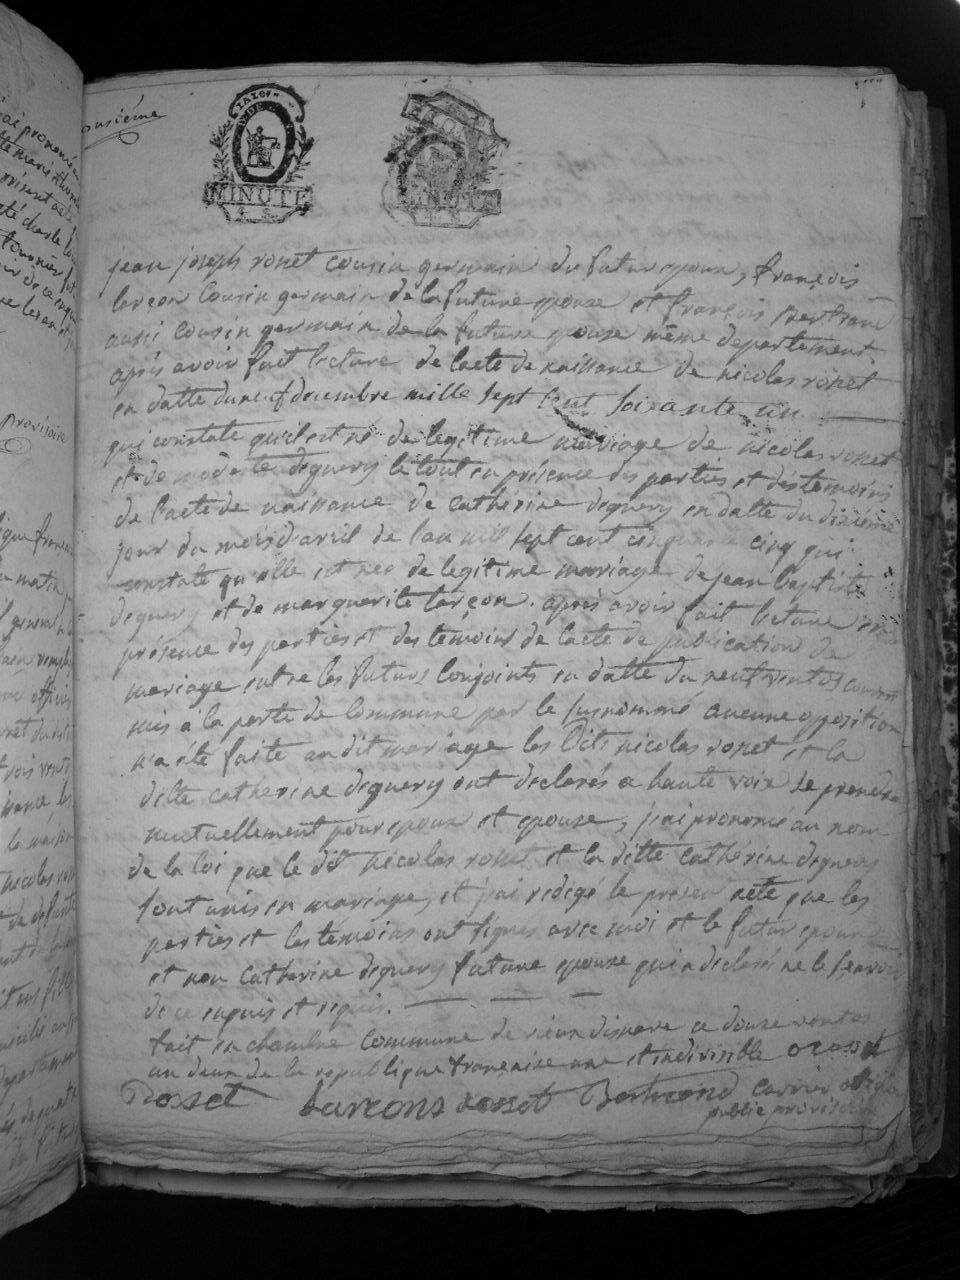 onsiéme
LA LOI
MINUTE
jean joseph rosset cousin germain du futur epoux, françois
larçon Cousin germain de la future epouse et françois Bertrand
aussi Cousin germain de la future epouse même departement
après avoir fait lecture de lacte de naissance de nicolas rosset
en datte du neuf decembre mille sept Cent soixante un
qui constate qu'il est né de legitime mariage de nicolas rosset
et de modeste deguery le tout en présence des parties et des temoins
de lacte de naissance de cathérine deguery en datte du dixieme
jour du mois d'avril de lan mil sept cent cinquante cinq qui
constate qu'elle est née de legitime mariage de jean baptiste
deguery et de marguerite larçon. après avoir fait lecture en
présence des parties et des témoins de lacte de publication de
mariage entre les futurs Conjoints en datte du neuf ventos courant
mis à la porte de Commune par le susnommé aucune opposition
n'a été faite audit mariage les Dits nicolas rosset et la
ditte catherine deguery ont declarés a haute voix se prendre
mutuellement pour epoux et epouse, j'ai prononcé au nom
de la loi que le dit nicolas rosset et la ditte cathérine deguery
sont unis en mariage, et j'ai redigé le present acte que les
parties et les temoins ont signes avec moi et le futur epoux
et non Catherine deguery future epouse qui a declarés ne le scavoir
de ce enquis et requis.
fait en chambre Commune de ce douze ventos
an deux de la republique françoise une et indivisible
Rosset Larcons rosset Bertrand officier
public provisoire